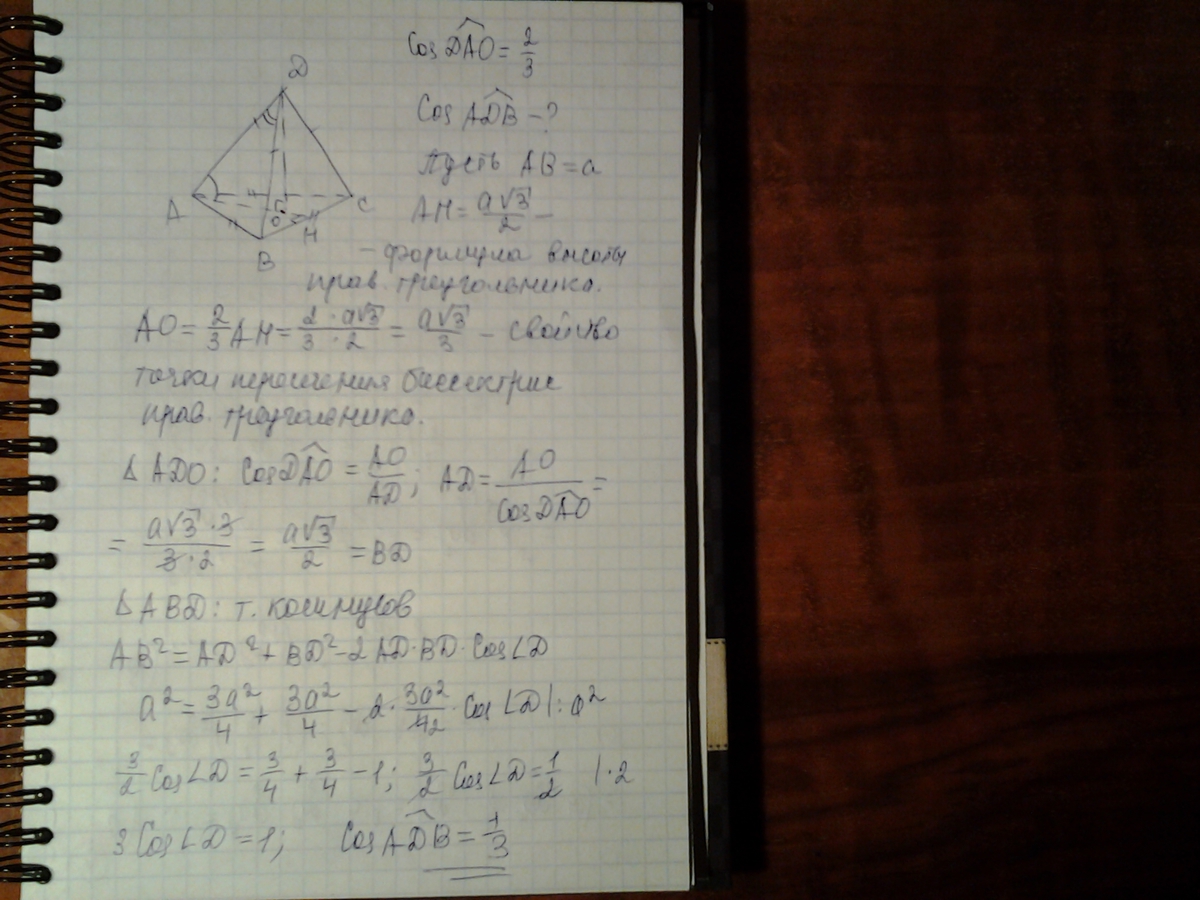 cos D͡AO = 2/3
cos A͡DB - ?
Пусть AB = a
AH = a√3/2 -
- формула высоты
прав. треугольника.
D
A
B
C
O
H
AO = 2/3 AH = 2·a√3/3·2 = a√3/3 - свойство
точки пересечения биссектрис
прав. треугольника.
Δ ADO: cos D͡AO = AO/AD; AD = AO/cos D͡AO =
= a√3·3/3·2 = a√3/2 = BD
Δ ABD: т. косинусов
AB² = AD² + BD² - 2AD·BD·cos∠D
a² = 3a²/4 + 3a²/4 - 2·3a²/42·cos∠D |: a²
3/2 cos∠D = 3/4 + 3/4 - 1; 3/2 cos∠D = 1/2 |·2
3cos∠D = 1; cos A͡DB = 1/3